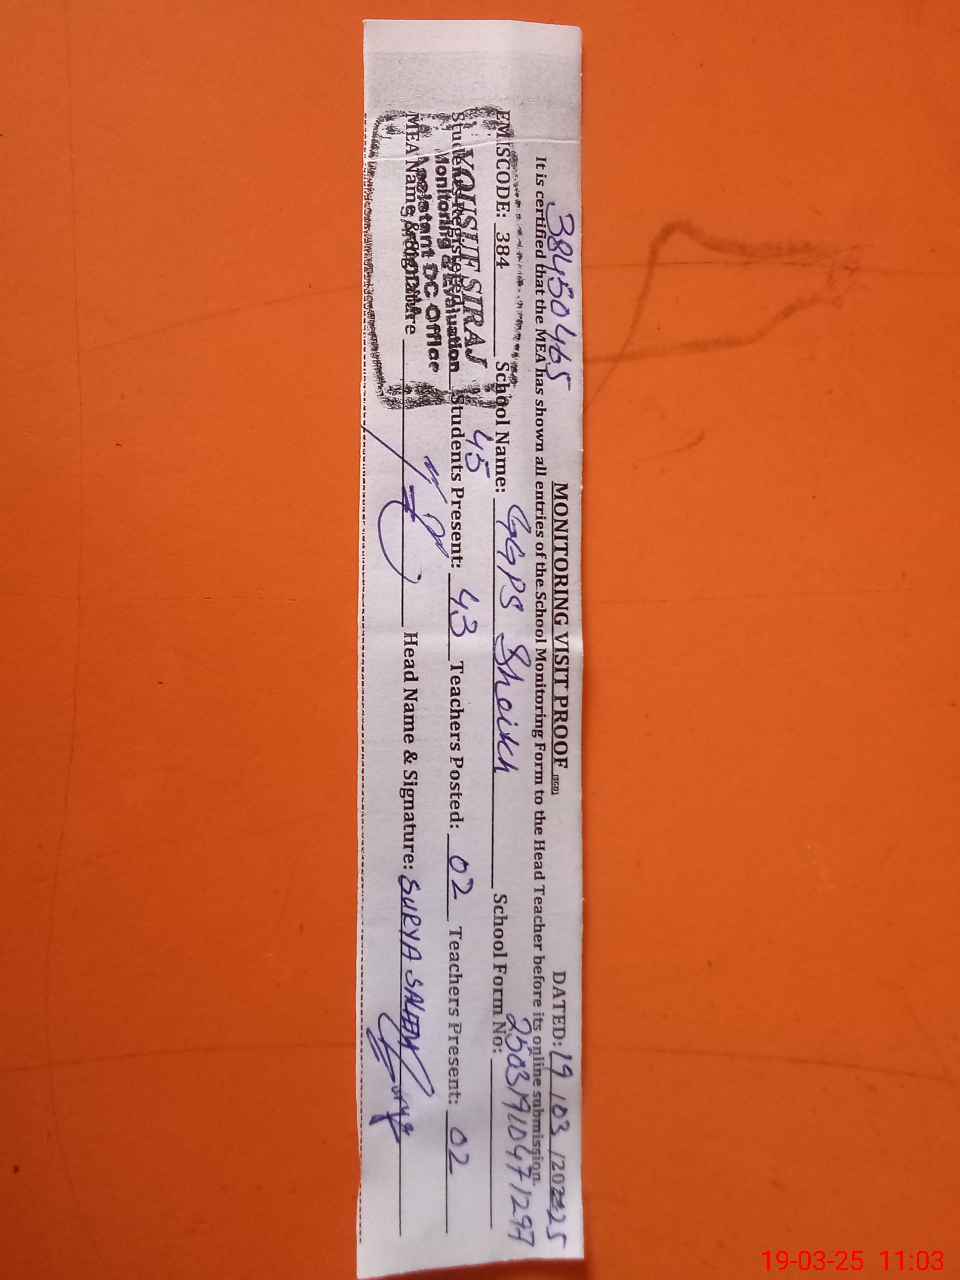 MONITORING VISIT PROOF DATED: 19/03/2025
38450465
It is certified that the MEA has shown all entries of the School Monitoring Form to the Head Teacher before its online submission.
EMISCODE: 384 School Name: GGPS Sheikh School Form No:
45 Students Present: 43 Teachers Posted: 02 Teachers Present: 02
YOUSUF SIRAJ
Monitoring & Evaluation
Assistant DC Office
MEA Name & Signature Head Name & Signature: SURYA SALEEM
19-03-25 11:03